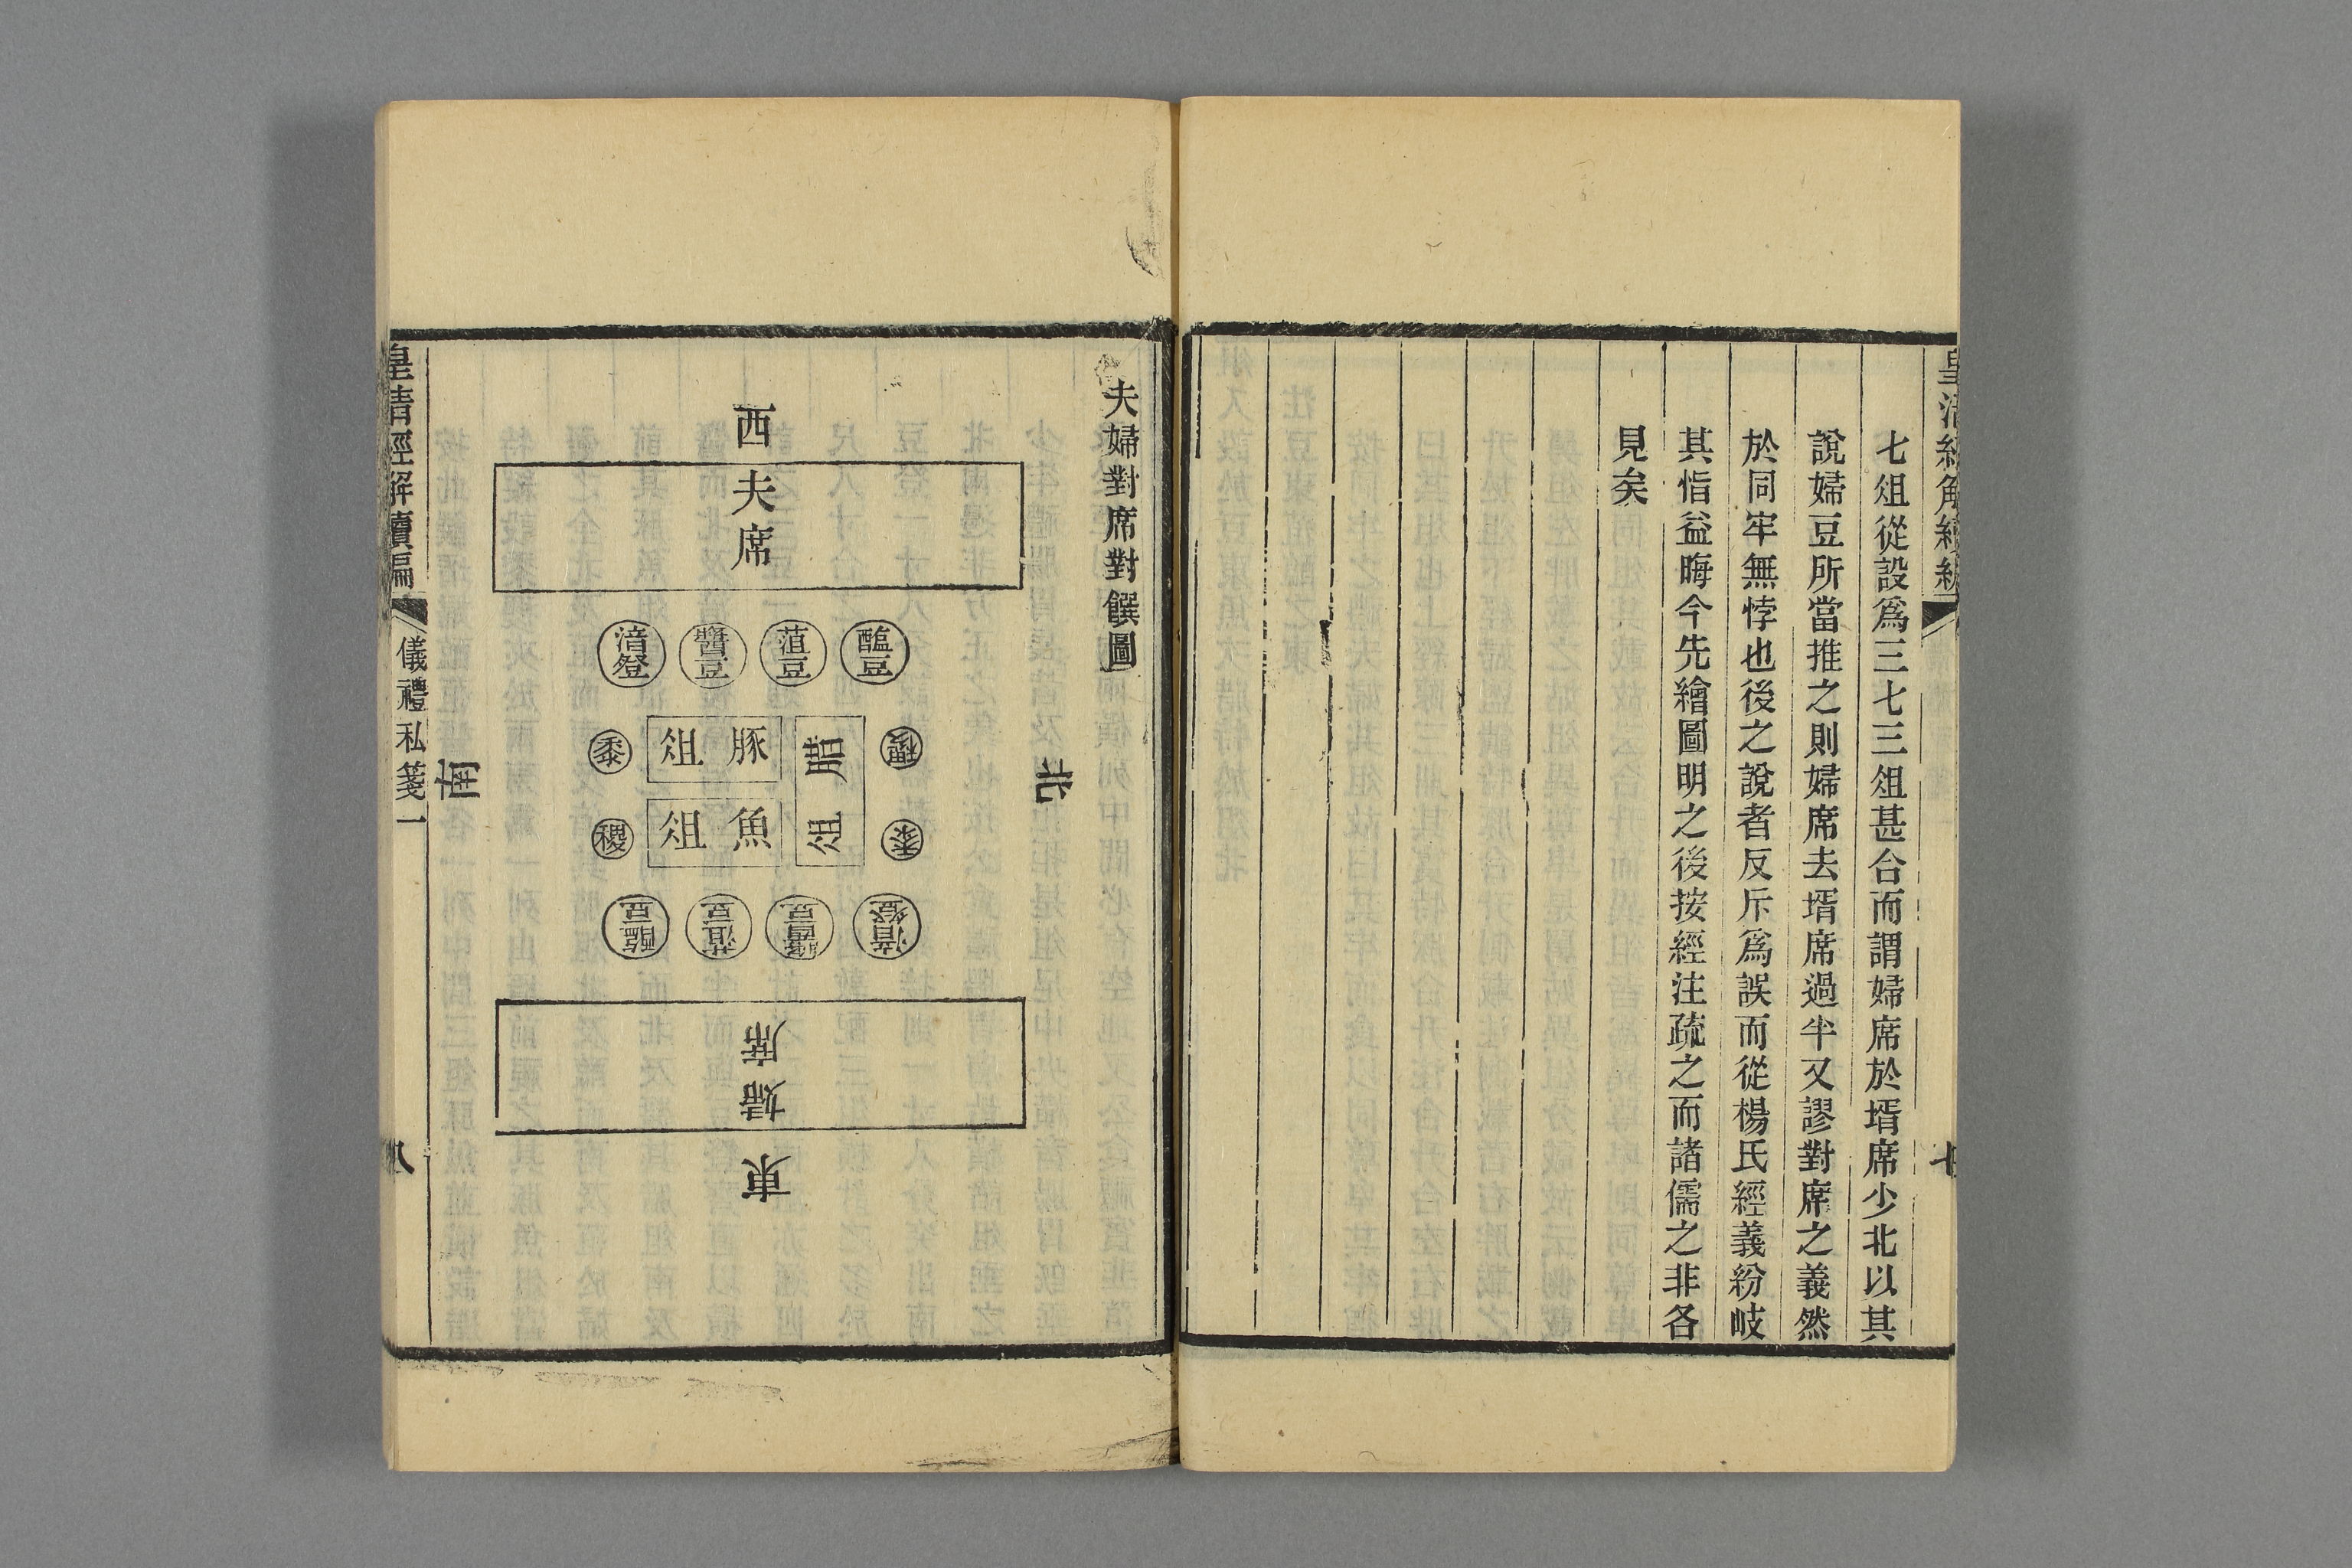 皇清經解續編
七
七俎從設爲三七三俎甚合而謂婦席於壻席少北以其
說婦豆所當推之則婦席去壻席過半又謬對席之義然
於同牢無悖也後之說者反斥爲誤而從楊氏經義紛岐
其恉益晦今先繪圖明之後按經注疏之而諸儒之非各
見矣
夫婦對席對饌圖
北
西
夫席
醢豆
菹豆
醬豆
湆鐙
稷
豚俎
黍
腊俎
黍
魚俎
稷
湆鐙
醬豆
菹豆
醢豆
婦席
東
南
皇清經解續編
儀禮私箋一
八